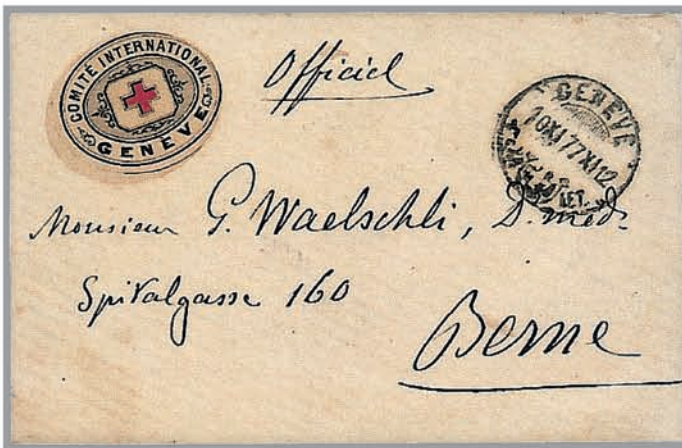 COMITÉ INTERNATIONAL
GENÈVE
Officiel
GENEVE
10 XI 77 XI 12
LET.
Monsieur G. Waelschli, D. med.
Spitalgasse 160
Berne